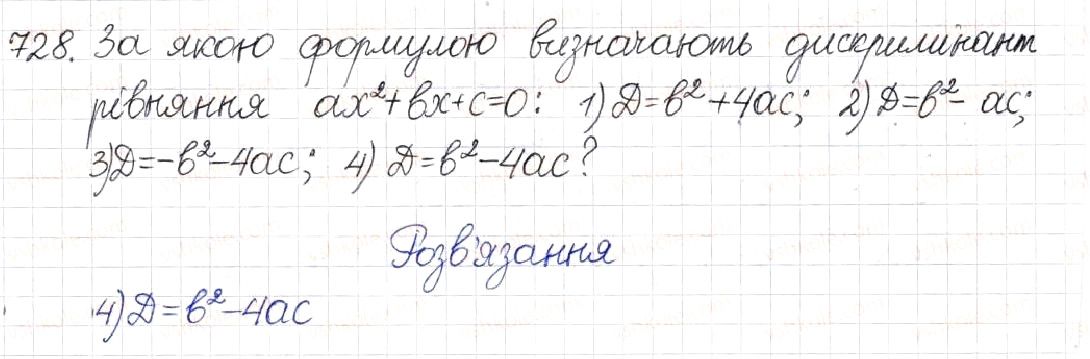 728. За якою формулою визначають дискримінант
рівняння ax²+bx+c=0: 1) D=b²+4ac; 2) D=b²- ac;
3) D=-b²-4ac; 4) D=b²-4ac?
Розв'язання
4) D=b²-4ac